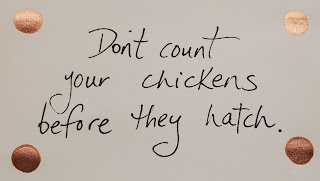 Don't count
your chickens
before they hatch.